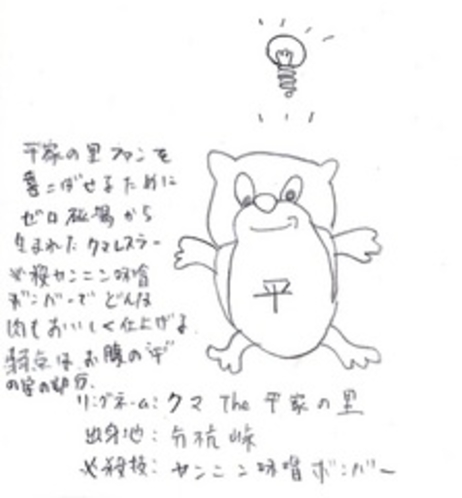 平家の里ファンを
喜こばせるために
ゼロ磁場から
生まれたクマレスラー
必殺ヤンニン味噌
ボンバーでどんな
肉もおいしく仕上げる.
弱点はお腹の"平"
の字の部分.
平
リングネーム: クマ The 平家の里
出身地: 分杭峠
必殺技: ヤンニン味噌ボンバー